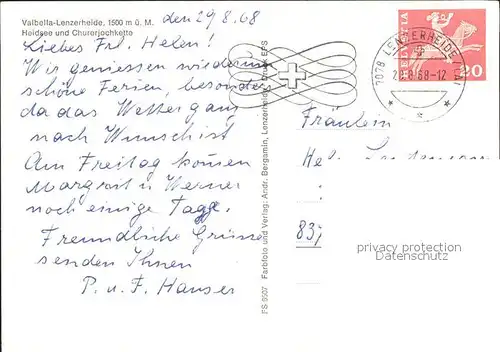 Valbella-Lenzerheide, 1500 m ü. M.
Heidsee und Churerjochkette
den 29.8.68
Liebes Frl. Helen!
Wir geniessen wiederum
schöne Ferien, besonders
da das Wetter ganz
nach Wunsch ist
Am Freitag kommen
Margrit u. Werner
noch einige Tage.
Freundliche Grüsse
senden Ihnen
P. u. F. Hauser
FS 6507 Farbfoto und Verlag: Andr. Bergamin, Lenzerheide
7078 LENZERHEIDE/LAI
29.8.68-12
HELVETIA
20
Fräulein
Hel
83
privacy protection
AnsichtskartenVersand.com